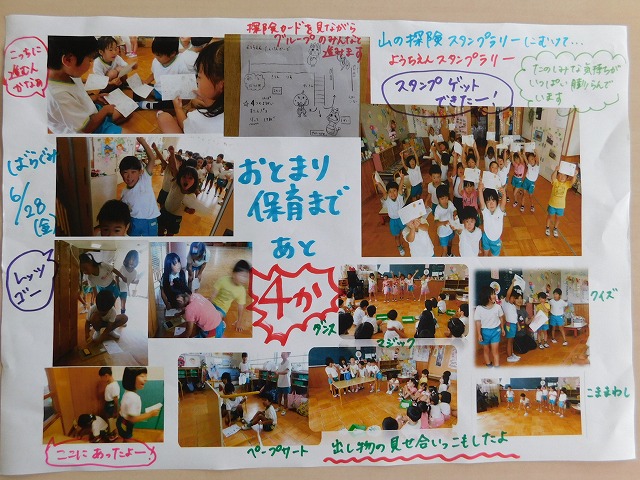 こっちに
進むん
かなぁ
探険カードを見ながら
グループのみんなと
進みます
山の探険スタンプラリーにむけて…
ようちえんスタンプラリー
スタンプゲット
できたー!
たのしみな気持ちが
いっぱい膨らんで
います
ばらぐみ
6/28
(金)
おとまり
保育まで
あと
4か
レッツ
ゴー
ダンス
マジック
クイズ
こままわし
ここにあったよー!
ペープサート
出し物の見せ合いっこもしたよ